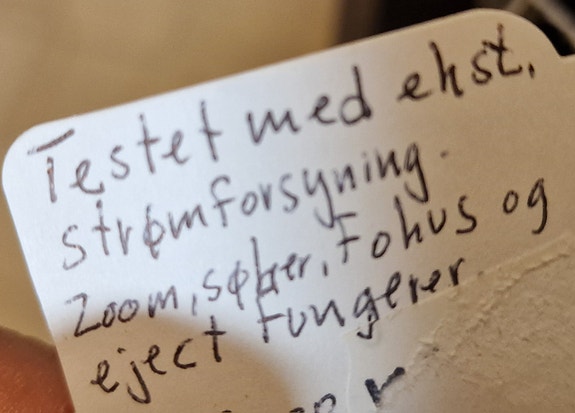 Testet med ekst.
strømforsyning.
Zoom, søker, Fokus og
eject fungerer